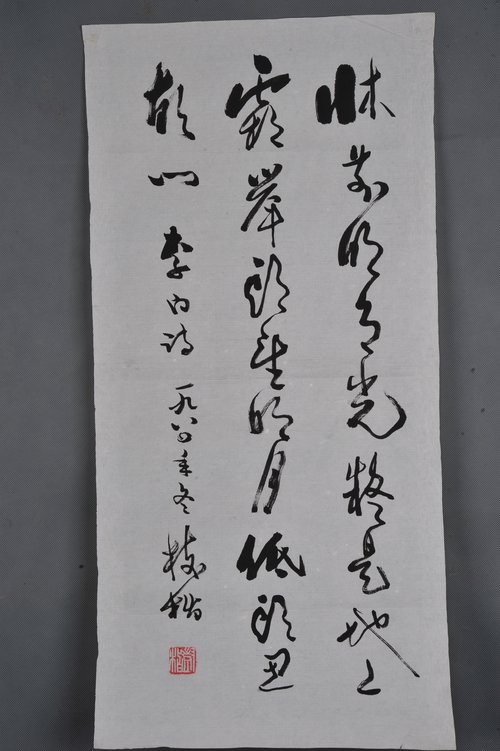 牀前明月光疑是地上
霜举頭望明月低頭思
故鄉 李白诗 一九八〇年冬